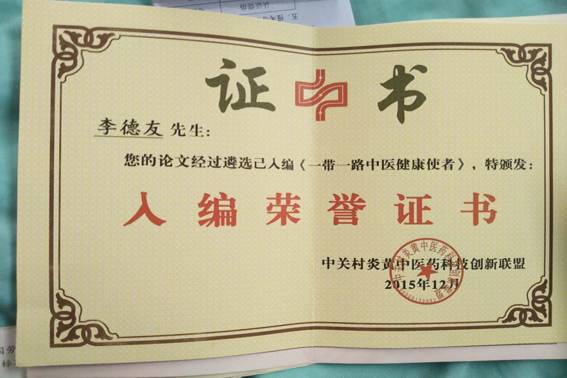 证书
李德友 先生：
您的论文经过遴选已入编《一带一路中医健康使者》，特颁发：
入编荣誉证书
中关村炎黄中医药科技创新联盟
2015年12月